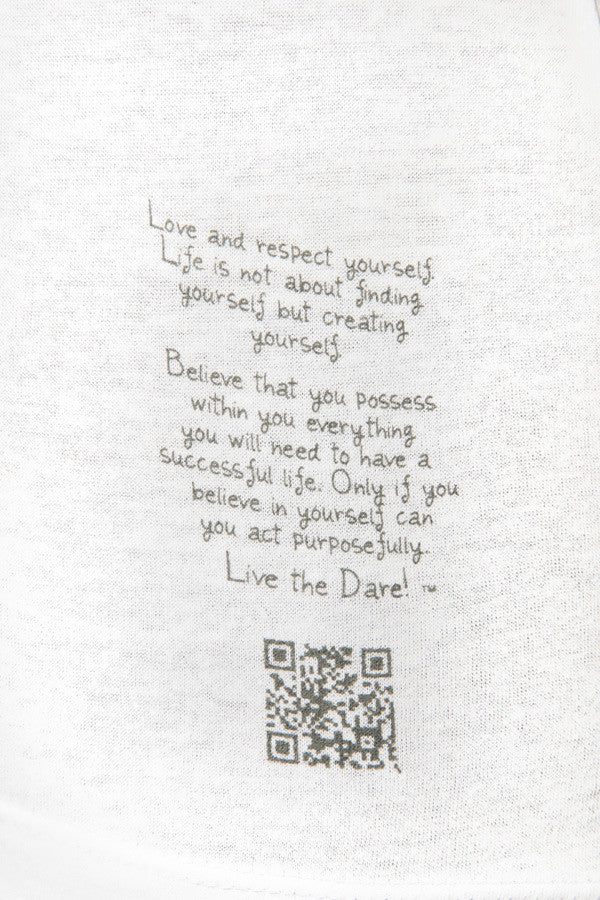 Love and respect yourself.
Life is not about finding
yourself but creating
yourself.
Believe that you possess
within you everything
you will need to have a
successful life. Only if you
believe in yourself can
you act purposefully.
Live the Dare! ™